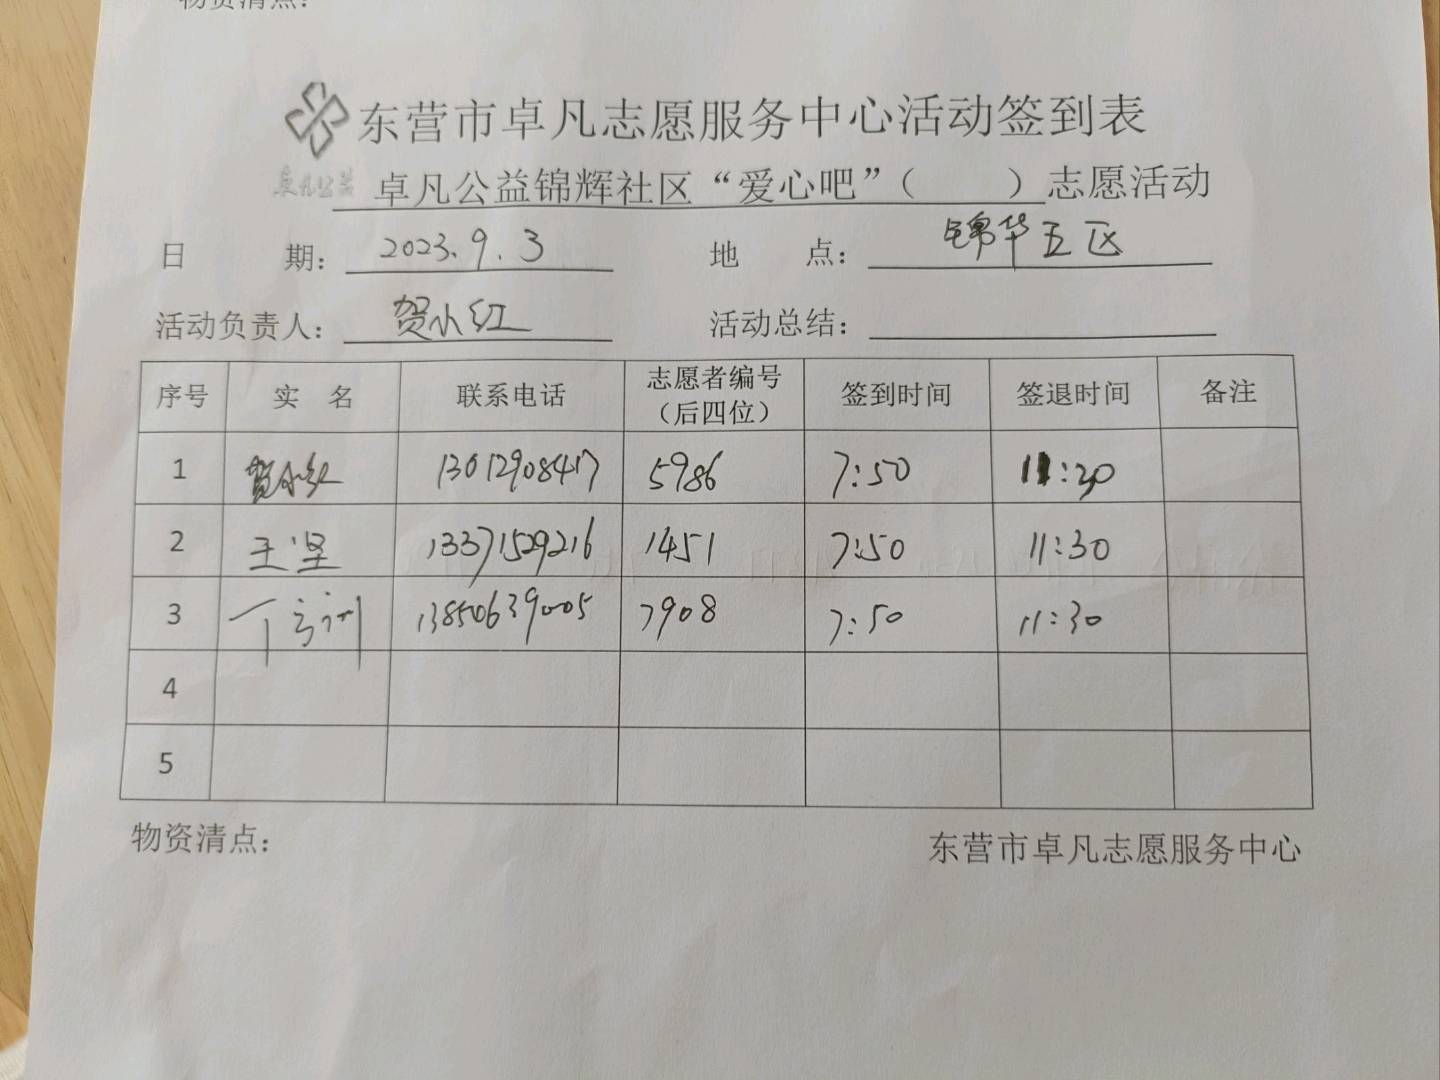 物资清点：
东营市卓凡志愿服务中心活动签到表
卓凡公益 卓凡公益锦辉社区“爱心吧”（ ）志愿活动
日 期： 2023.9.3 地 点： 锦华五区
活动负责人： 贺小红 活动总结：
序号 实 名 联系电话 志愿者编号（后四位） 签到时间 签退时间 备注
1 贺小红 13012908417 5986 7:50 11:30
2 王坚 13371529216 1451 7:50 11:30
3 13850639005 7908 7:50 11:30
4
5
物资清点： 东营市卓凡志愿服务中心